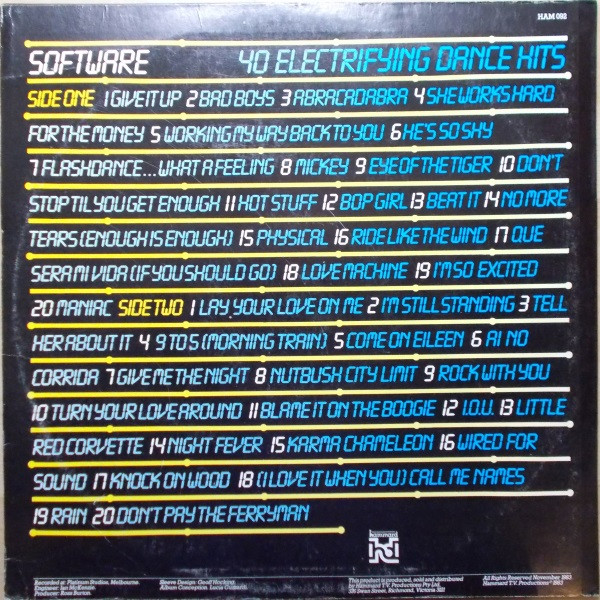 HAM 092
SOFTWARE 40 ELECTRIFYING DANCE HITS
SIDE ONE 1 GIVE IT UP 2 BAD BOYS 3 ABRACADABRA 4 SHE WORKS HARD
FOR THE MONEY 5 WORKING MY WAY BACK TO YOU 6 HE'S SO SHY
7 FLASHDANCE... WHAT A FEELING 8 MICKEY 9 EYE OF THE TIGER 10 DON'T
STOP TIL YOU GET ENOUGH 11 HOT STUFF 12 BOP GIRL 13 BEAT IT 14 NO MORE
TEARS (ENOUGH IS ENOUGH) 15 PHYSICAL 16 RIDE LIKE THE WIND 17 QUE
SERA MI VIDA (IF YOU SHOULD GO) 18 LOVE MACHINE 19 I'M SO EXCITED
20 MANIAC SIDE TWO 1 LAY YOUR LOVE ON ME 2 I'M STILL STANDING 3 TELL
HER ABOUT IT 4 9 TO 5 (MORNING TRAIN) 5 COME ON EILEEN 6 AI NO
CORRIDA 7 GIVE ME THE NIGHT 8 NUTBUSH CITY LIMIT 9 ROCK WITH YOU
10 TURN YOUR LOVE AROUND 11 BLAME IT ON THE BOOGIE 12 I.O.U. 13 LITTLE
RED CORVETTE 14 NIGHT FEVER 15 KARMA CHAMELEON 16 WIRED FOR
SOUND 17 KNOCK ON WOOD 18 (I LOVE IT WHEN YOU) CALL ME NAMES
19 RAIN 20 DON'T PAY THE FERRYMAN
hammard
Recorded at Platinum Studios, Melbourne.
Engineer: Ian McKenzie.
Producer: Ross Burton.
Sleeve Design: Geoff Hocking.
Album Conception: Lucio
This product is produced, sold and distributed
by Hammard T.V. Productions Pty Ltd.
Swan Street, Richmond, Victoria 3121
All Rights Reserved November 1983
Hammard T.V. Productions 1983